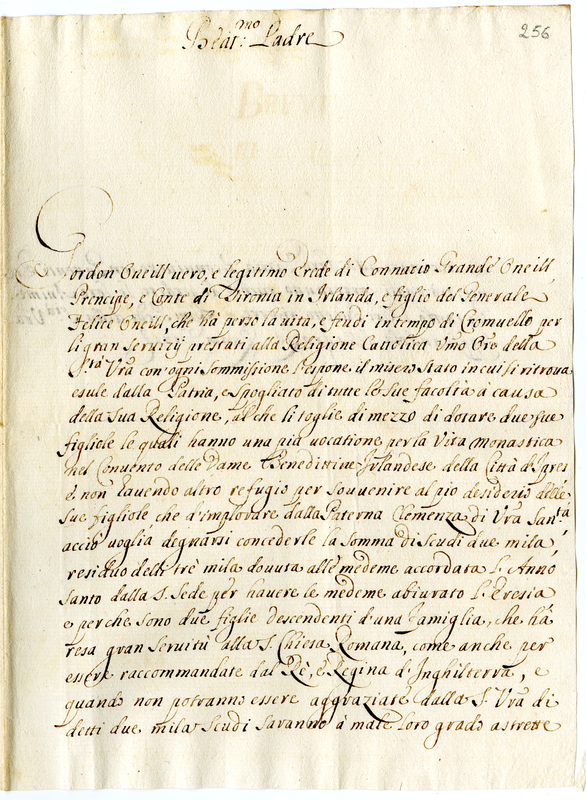 256
Beat:mo Padre
Gordon Oneill vero, e legitimo Erede di Connacio Grande Oneill
Prencipe, e Conte di Tironia in Irlanda, e figlio del Generale
Felice Oneill, che hà perso la vita, e feudi in tempo di Cromuello per
li gran Servizij prestati alla Religione Cattolica Vmo Ore della
S.tà Vrã con ogni Sommissione l'espone il misero Stato in cui si ritroua
esule dalla Patria, e Spogliato di tutte le sue facoltà à causa
della Sua Religione, al che li toglie di mezzo di dotare due sue
figliole le quali hanno una pia uocatione per la Vita Monastica
nel Convento delle Dame Benedittine Irlandese della Città d'Ipres
è non havendo altro refugio per souvenire al pio desiderio delle
sue figliole che d'implorare dalla Paterna Clemenza di Vrã San.tà
acciò uoglia degnarsi concederle la Somma di Scudi due mila,
residuo delli trè mila douuta alle medeme accordata l'Anno
Santo dalla S. Sede per hauere le medeme abiurato l'Eresia
e perche sono due figlie descendenti d'una Famiglia, che hà
resa gran Seruitù alla S. Chiesa Romana, come anche per
essere raccommandate dal Rè, e Regina d'Inghilterra, e
quando non potranno essere aggraziate dalla S. Vrã di
detti due mila Scudi Saranno à male loro grado astrette